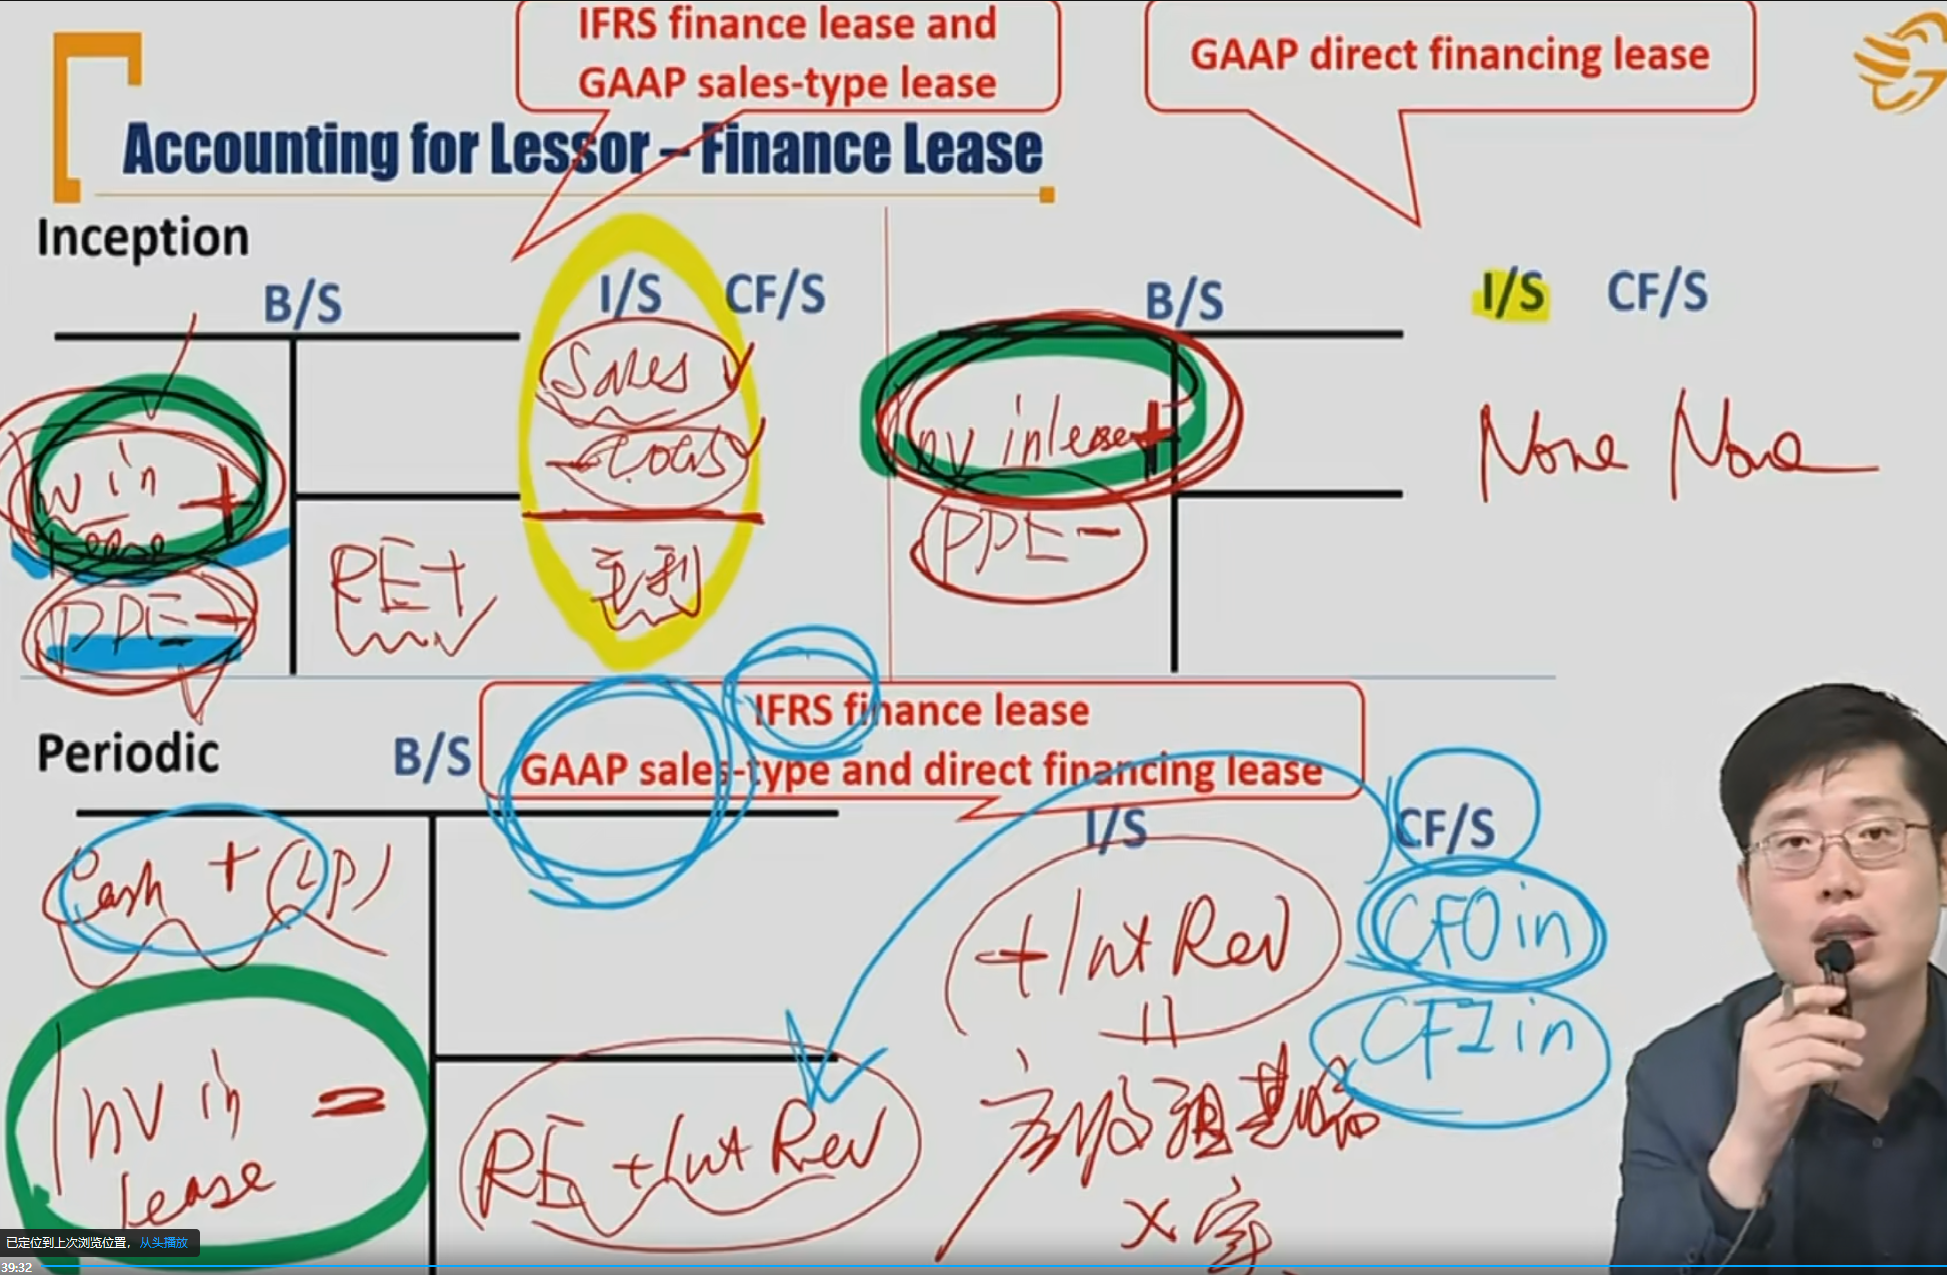 IFRS finance lease and
GAAP sales-type lease
GAAP direct financing lease
Accounting for Lessor – Finance Lease
Inception
B/S
I/S
CF/S
B/S
I/S
CF/S
Sales
- COGS
毛利
Inv in +
lease
PPE -
RE +
Inv in lease +
PPE -
None
None
Periodic
B/S
IFRS finance lease
GAAP sales-type and direct financing lease
I/S
CF/S
Cash + (LP)
Inv in -
lease
RE + Int Rev
+ Int Rev
CFO in
CFI in
已定位到上次浏览位置，从头播放
39:32